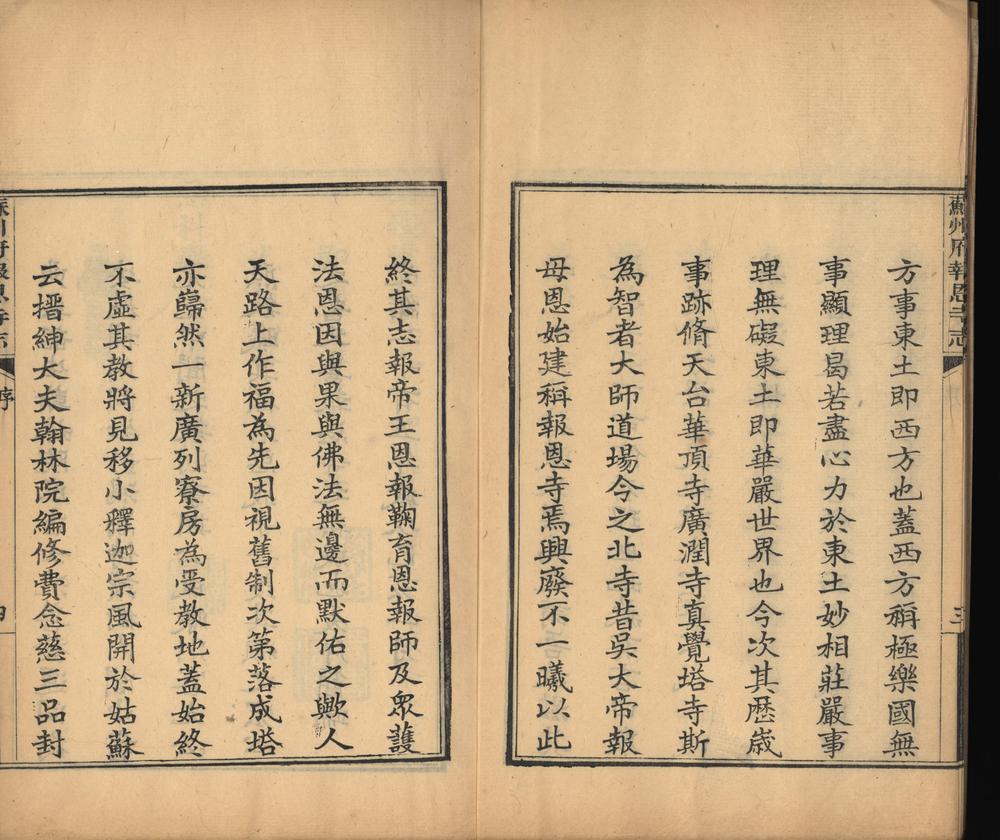 蘇州府報恩寺志
三
方事東土即西方也蓋西方稱極樂國無
事顯理曷若盡心力於東土妙相莊嚴事
理無礙東土即華嚴世界也今次其歷歲
事跡脩天台華頂寺廣潤寺真覺塔寺斯
為智者大師道場今之北寺昔吳大帝報
母恩始建稱報恩寺焉興廢不一曦以此
終其志報帝王恩報鞠育恩報師及眾護
法恩因與果與佛法無邊而默佑之歟人
天路上作福為先因視舊制次第落成塔
亦巋然一新廣列寮房為受教地蓋始終
不虛其教將見移小釋迦宗風開於姑蘇
云搢紳大夫翰林院編修費念慈三品封
蘇州府報恩寺志
序
四